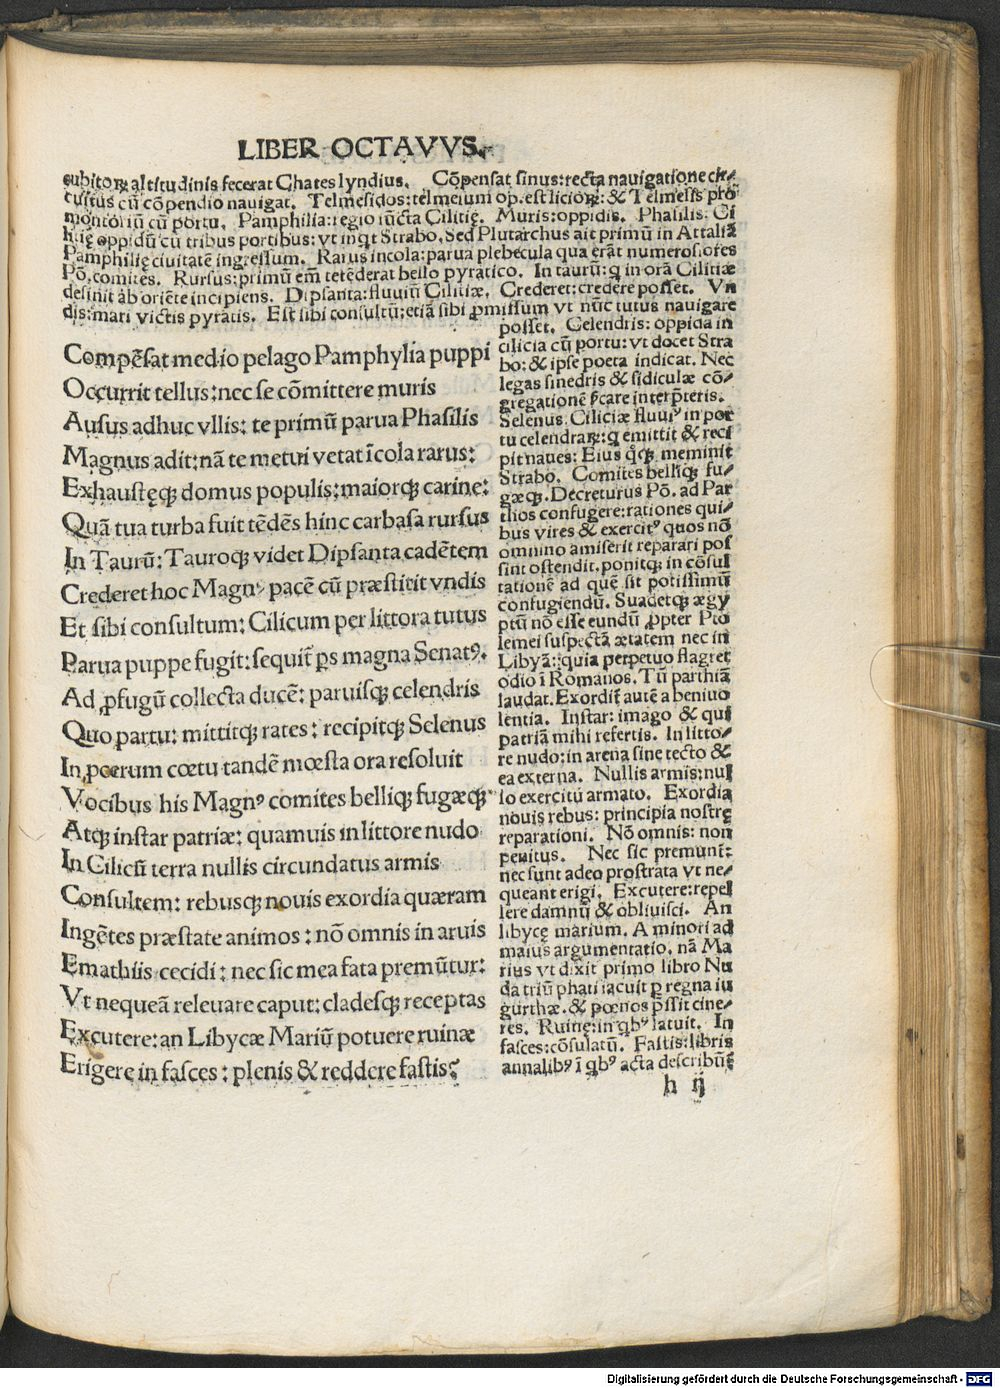 LIBER OCTAVVS.
cubitoꝝ altitudinis fecerat Chates lyndius. Cōpensat sinus: recta nauigatione cir⸗
cuitus cū cōpendio nauigat. Telmesidos: telmeium op. est licioꝝ: & Telmesis pro
montoriū cū portu. Pamphilia: regio iūcta Cilitię. Muris: oppidis. Phasilis: Ci
litię oppidū cū tribus portibus: vt inqt Strabo. Sed Plutarchus ait primū in Attaliā
Pamphilię ciuitatē ingressum. Rarus incola: parua plebecula qua erāt numerosiores
Pō. comites. Rursus: primū em̄ tetēderat bello pyratico. In taurū: q in orā Cilitiæ
desinit ab oriēte incipiens. Dipsanta: fluuiū Cilitiæ. Crederet: credere posset. Vn
dis: mari victis pyratis. Est sibi consultū: etiā sibi ꝓmissum vt nūc tutus nauigare
posset. Celendris: oppida in
cilicia cū portu: vt docet Stra
bo: & ipse poeta indicat. Nec
legas sinedris & sidiculæ cō⸗
gregationē p̄care interp̄teris.
Selenus Ciliciæ fluuiꝰ in por
tu celendraꝝ: q emittit & reci
pit naues: Eius qꝗ meminit
Strabo. Comites belliqꝫ fu⸗
gæqꝫ. Decreturus Pō. ad Par
thos confugere: rationes qui⸗
bus vires & exercitꝰ quos nō
omnino amiserit reparari pos
sint ostendit. ponitqꝫ in cōsul
tationē ad quē sit potissimū
confugiendū. Suadetqꝫ ægy
ptū nō esse eundū ꝓpter Pto
lemei suspectā ætatem nec in
Libyā: quia perpetuo flagret
odio ī Romanos. Tū parthiā
laudat. Exordit̄ autē a beniuo
lentia. Instar: imago & qui
patriā mihi refertis. In litto⸗
re nudo: in arena sine tecto &
ea externa. Nullis armis: nul
lo exercitu armato. Exordia
nouis rebus: principia nostrę
reparationi. Nō omnis: non
penitus. Nec sic premunt̄:
nec sunt adeo prostrata vt ne⸗
queant erigi. Excutere: repel
lere damnū & obliuisci. An
libycę marium. A minori ad
maius argumentatio. nā Ma
rius vt dixit primo libro Nu
da triū phati iacuit ꝑ regna iu
gurthæ. & pœnos p̄ssit cine⸗
res. Ruinę: in qbꝰ latuit. In
fasces: cōsulatū. Fastis: libris
annalibꝰ ī qbꝰ acta describūt̄
Compēsat medio pelago Pamphylia puppi
Occurrit tellus: nec se cōmittere muris
Ausus adhuc vllis: te primū parua Phasilis
Magnus adit: nā te metui vetat īcola rarus:
Exhaustęqꝫ domus populis: maiorqꝫ carine:
Quā tua turba fuit tēdēs hinc carbasa rursus
In Taurū: Tauroqꝫ videt Dipsanta cadētem
Crederet hoc Magnꝰ pacē cū præstitit vndis
Et sibi consultum: Cilicum per littora tutus
Parua puppe fugit: sequit̄ ps magna Senatꝰ.
Ad ꝓfugū collecta ducē: paruisqꝫ celendris
Quo partu: mittitqꝫ rates: recipitqꝫ Selenus
In poerum cœtu tandē mœsta ora resoluit
Vocibus his Magnꝰ comites belliqꝫ fugæqꝫ
Atqꝫ instar patriæ: quamuis in littore nudo
In Cilicū terra nullis circundatus armis
Consultem: rebusqꝫ nouis exordia quæram
Ingētes præstate animos: nō omnis in aruis
Emathiis cecidi: nec sic mea fata premūtur:
Vt nequeā releuare caput: cladesqꝫ receptas
Excutere: an Libycæ Mariū potuere ruinæ
Erigere in fasces: plenis & reddere fastis?
h ij
Digitalisierung gefördert durch die Deutsche Forschungsgemeinschaft - DFG